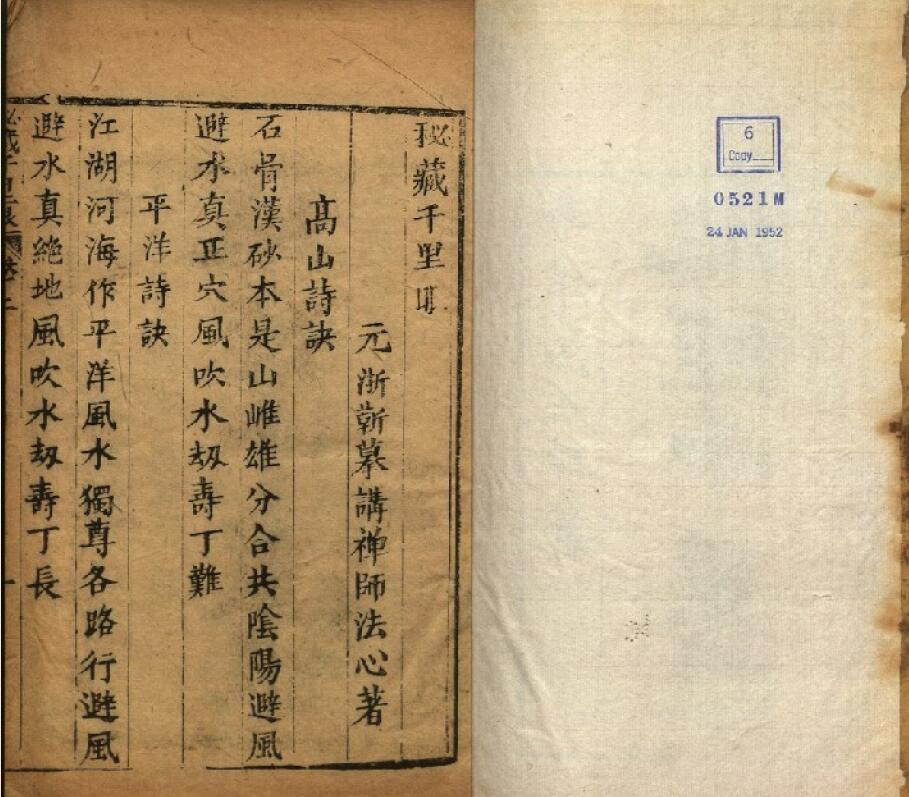 秘藏千里
元浙蘄摹講禅師法心著
高山詩訣
石骨漢砂本是山雌雄分合共陰陽避風
避水真正穴風吹水刼壽丁難
平洋詩訣
江湖河海作平洋風水獨尊各路行避風
避水真絶地風吹水刼壽丁長
6
Copy
0521M
24 JAN 1952